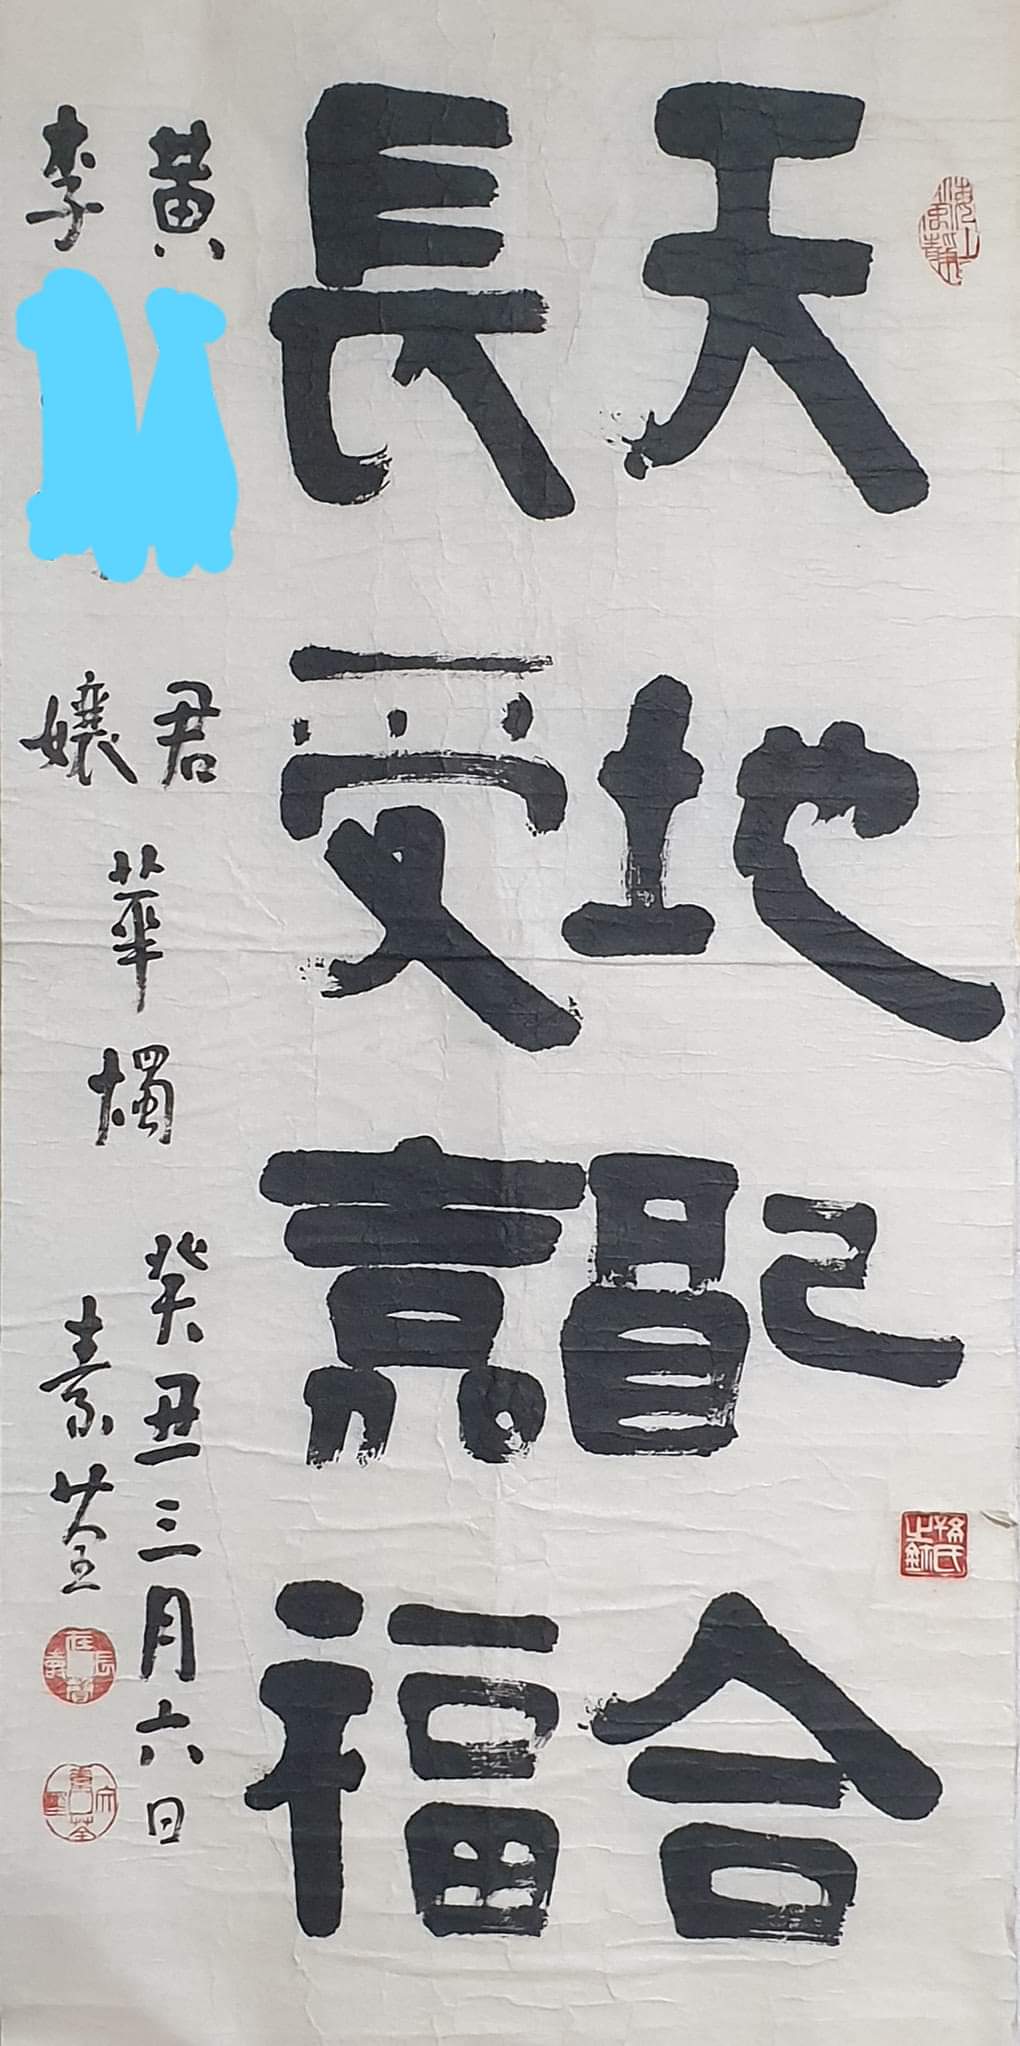 天地配合
長受嘉福
黃 君
李 孃
華燭
癸丑三月六日
素荃